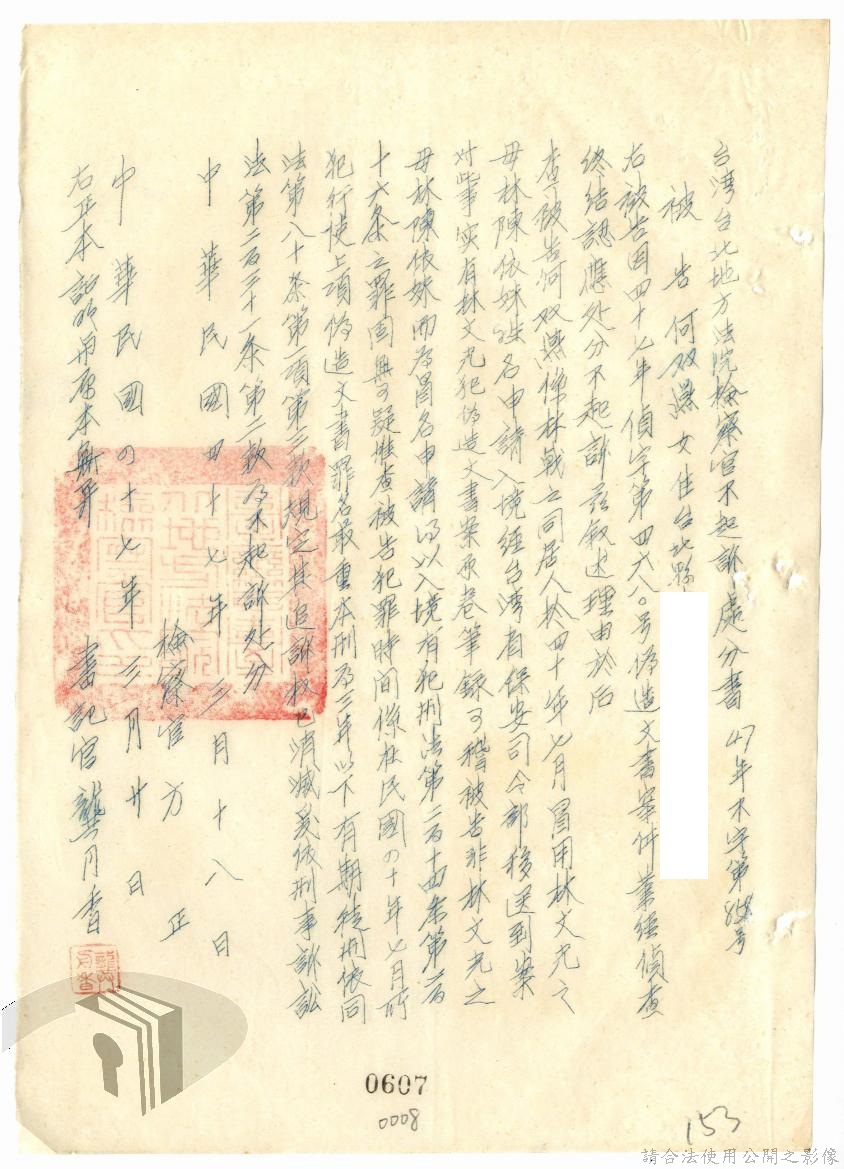 台湾台北地方法院檢察官不起訴處分書 47年不字第858号
被告何双燕女住台北縣
右被告因四十七年偵字第四六八〇号偽造文書案件業經偵查
終結認應处分不起訴茲叙述理由於后
查被告何双燕係林戟之同居人於四十年七月冒用林文光之
母林陳依妹姓名申請入境經台湾省保安司令部移送到案
对此事实有林文光犯偽造文書案原卷筆錄可稽被告非林文光之
母林陳依妹而為冒名申請得以入境有犯刑法第二百十四条第二百
十六条之罪固無可疑惟查被告犯罪時間係在民國四十年七月所
犯行使上項偽造文書罪名最重本刑為三年以下有期徒刑依同
法第八十条第一項第三款規定其追訴权已消滅爰依刑事訴訟
法第二百三十一条第二款為不起訴处分
中華民國四十七年三月十八日
檢察官方正
中華民國四十七年三月廿日
右正本証明與原本無異 書記官龔月香
0607
0008
153
請合法使用公開之影像